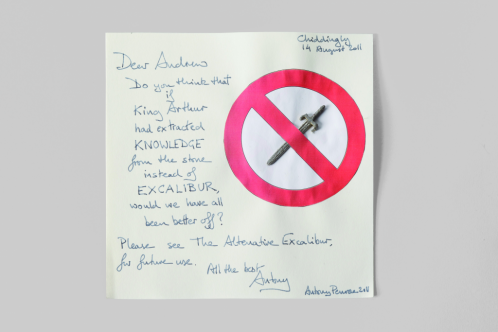 Chiddingly
14 August 2011
Dear Andrew
Do you think that
if
King Arthur
had extracted
KNOWLEDGE
from the stone
instead of
EXCALIBUR,
would we have all
been better off?
Please see The Alternative Excalibur,
for future use.
All the best
Antony
Antony Penrose 2011